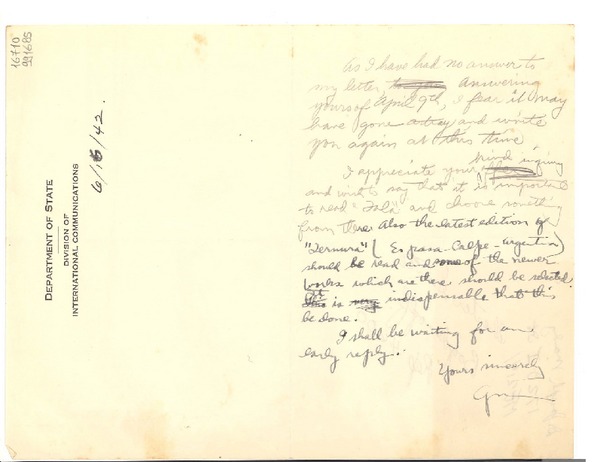 16710
991685
DEPARTMENT OF STATE
DIVISION OF
INTERNATIONAL COMMUNICATIONS
6/16/42.
As I have had no answer to
my letter, answering
yours of April 9th, I fear it may
have gone astray and write
you again at this time
I appreciate your kind
and wish to say that it is important
to read "Tala" and choose
from there. Also the latest edition of
"Ternura" (Espasa-Calpe-Argentina)
should be read and some of the newer
works which are there should be selected.
It is very indispensable that this
be done.
I shall be waiting for an
early reply.
Yours sincerely